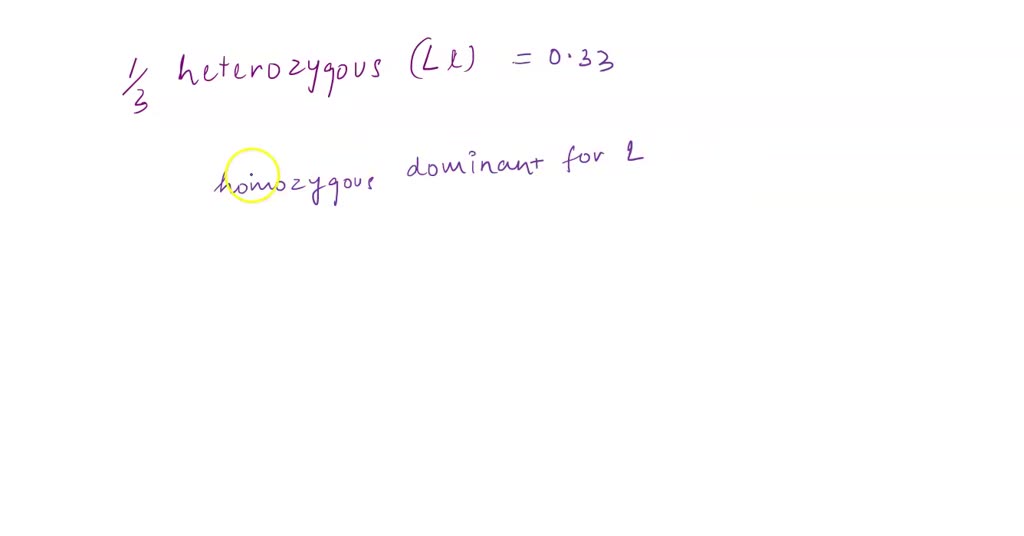 1/3 heterozygous (Ll) = 0.33
homozygous dominant for L